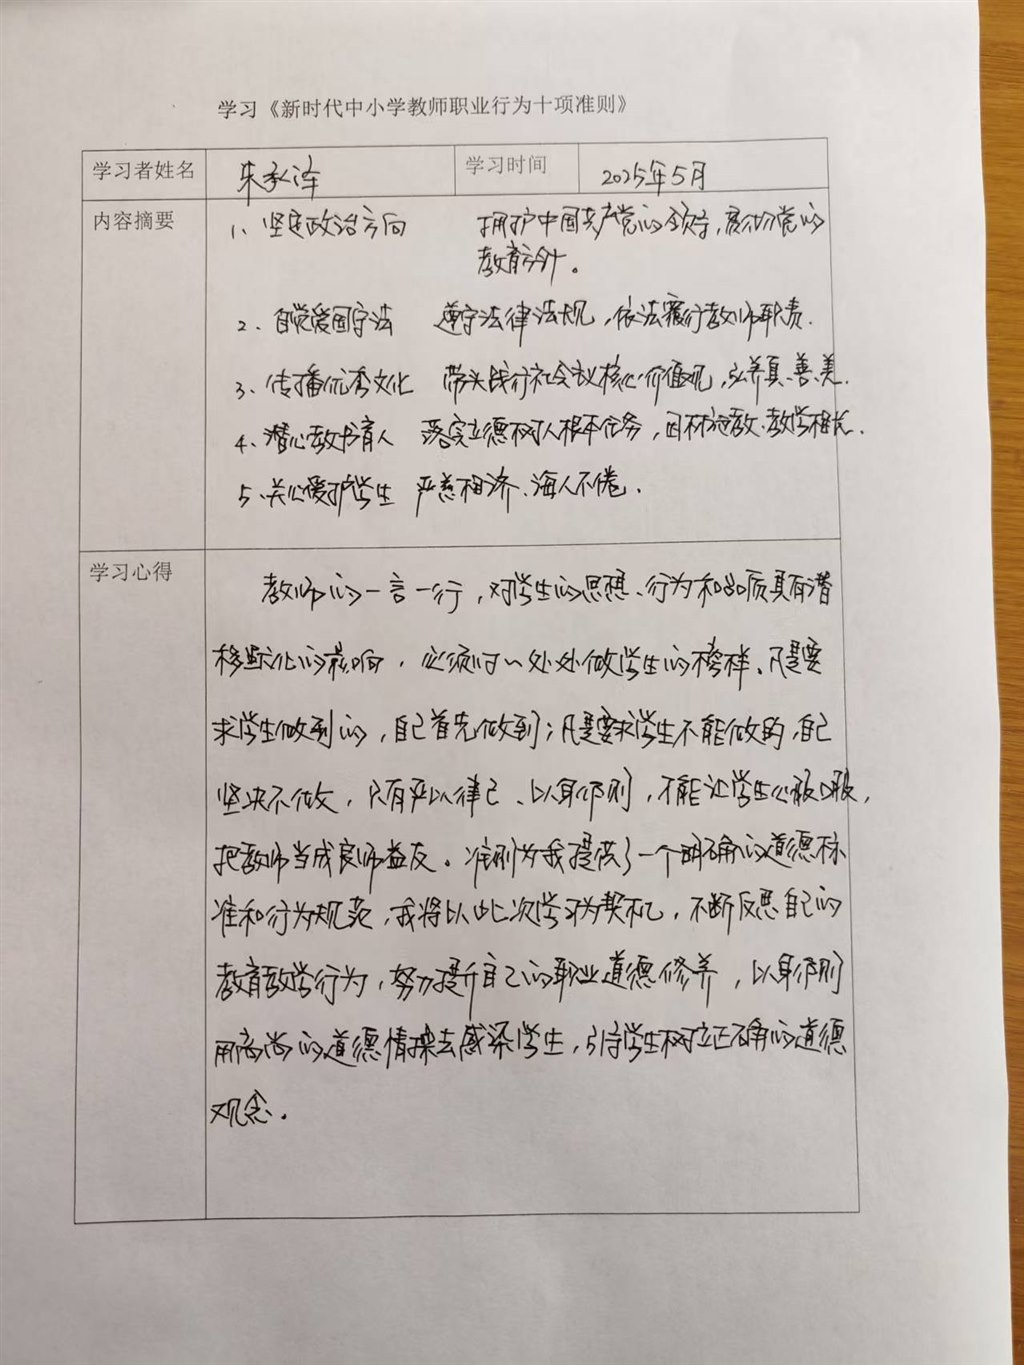 学习《新时代中小学教师职业行为十项准则》
学习者姓名 朱承泽 学习时间 2025年5月
内容摘要 1、坚定政治方向 拥护中国共产党的领导，贯彻党的
教育方针。
2、自觉爱国守法 遵守法律法规，依法履行教师职责.
3、传播优秀文化 带头践行社会主义核心价值观，弘养真、善、美.
4、潜心教书育人 落实立德树人根本任务，因材施教、教学相长.
5、关心爱护学生 严慈相济、诲人不倦.
学习心得 教师的一言一行，对学生的思想、行为和品质具有潜
移默化的影响，必须时时处处做学生的榜样、凡是要
求学生做到的，自己首先做到；凡是要求学生不能做的，自己
坚决不做，只有严以律己、以身作则，才能让学生心服口服，
把教师当成良师益友。准则为我提供了一个明确的道德标
准和行为规范，我将以此次学习为契机，不断反思自己的
教育教学行为，努力提升自己的职业道德修养，以身作则
用高尚的道德情操去感染学生，引导学生树立正确的道德
观念.